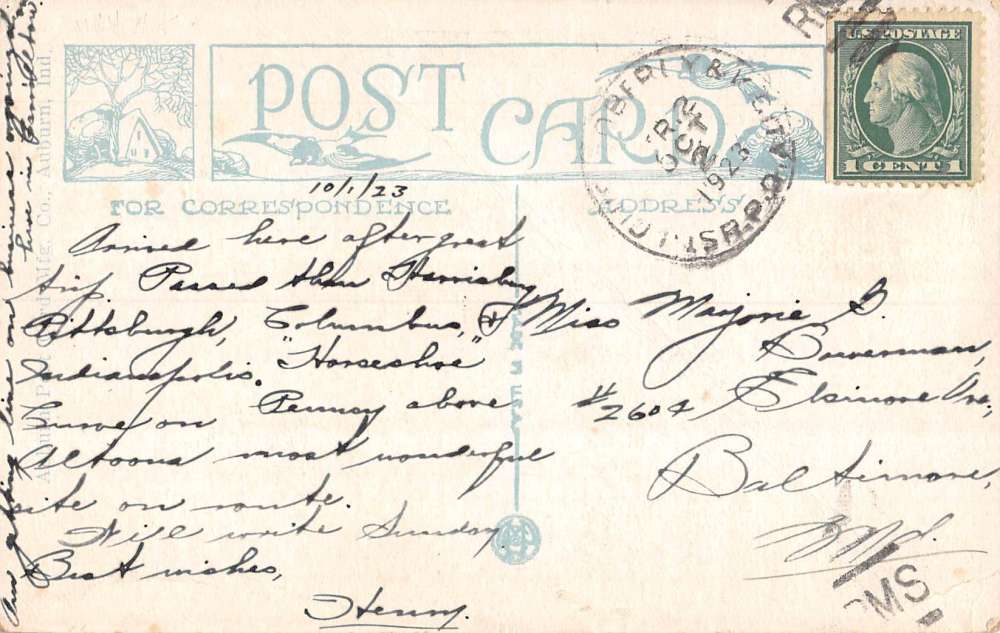 POST CARD
FOR CORRESPONDENCE
ADDRESS
10/1/23
Arrived here after great
trip. Passed thru Harrisburg
Pittsburgh, Columbus, &
Indianapolis. "Horseshoe"
Curve on Pennsy above
Altoona most wonderful
site on route.
Will write Sunday.
Best wishes,
Henry.
Am getting line on business opening
here in
Miss Marjorie G.
Bowerman,
#2604 Elsinore Ave.,
Baltimore,
Md.
U.S. POSTAGE
1 CENT 1
1923
R.P.O.
RMS
Auburn Post Card Mfg. Co., Auburn, Ind.
MADE IN U.S.A.